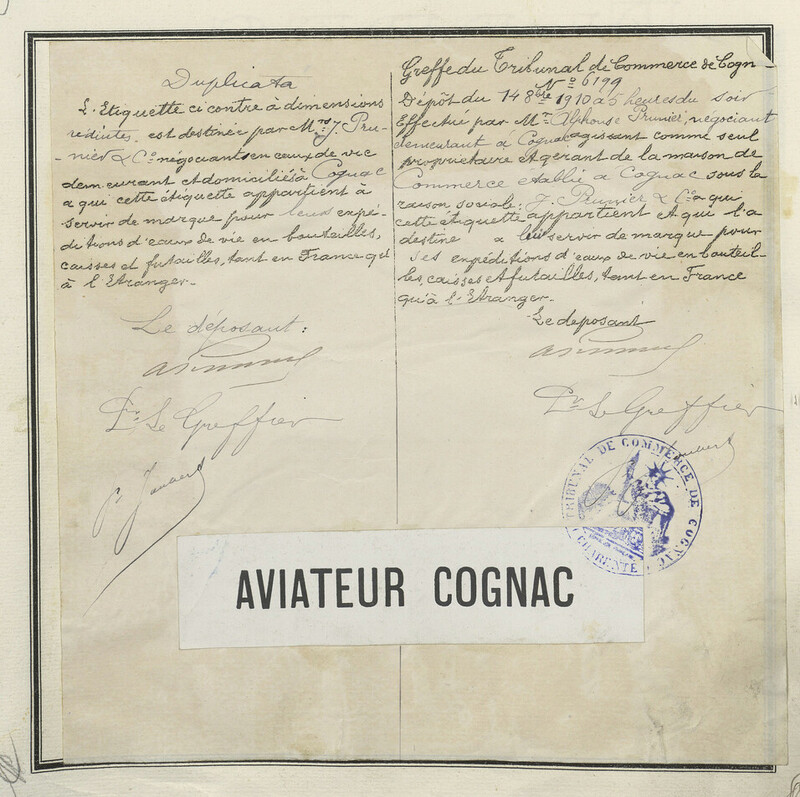 Duplicata
L'Etiquette ci contre à dimensions
réduites est destinée par Mrs J. Pru-
-nier & Co négociants en eaux de vie
demeurant et domiciliés à Cognac
a qui cette étiquette appartient à
servir de marque pour leurs expé-
ditions d'eaux de vie en bouteilles,
caisses et futailles, tant en France qu'
à l'Etranger.-
Le déposant:
Pr Le Greffier
Greffe du Tribunal de Commerce de Cogn
No 6199
Dépôt du 14 8bre 1910 à 5 heures du soir
Effectué par Mr Alphonse Prunier, négociant
demeurant à Cognac agissant comme seul
propriétaire et gérant de la maison de
Commerce etablie a Cognac sous la
raison sociale: J. Prunier & Co a qui
cette étiquette appartient et qui l'a
destine a lui servir de marque pour
ses expéditions d'eaux de vie en bouteil-
les, caisses et futailles, tant en France
qu'à l'Etranger.-
Le deposant
Pr Le Greffier
TRIBUNAL DE COMMERCE DE COGNAC
CHARENTE
AVIATEUR COGNAC